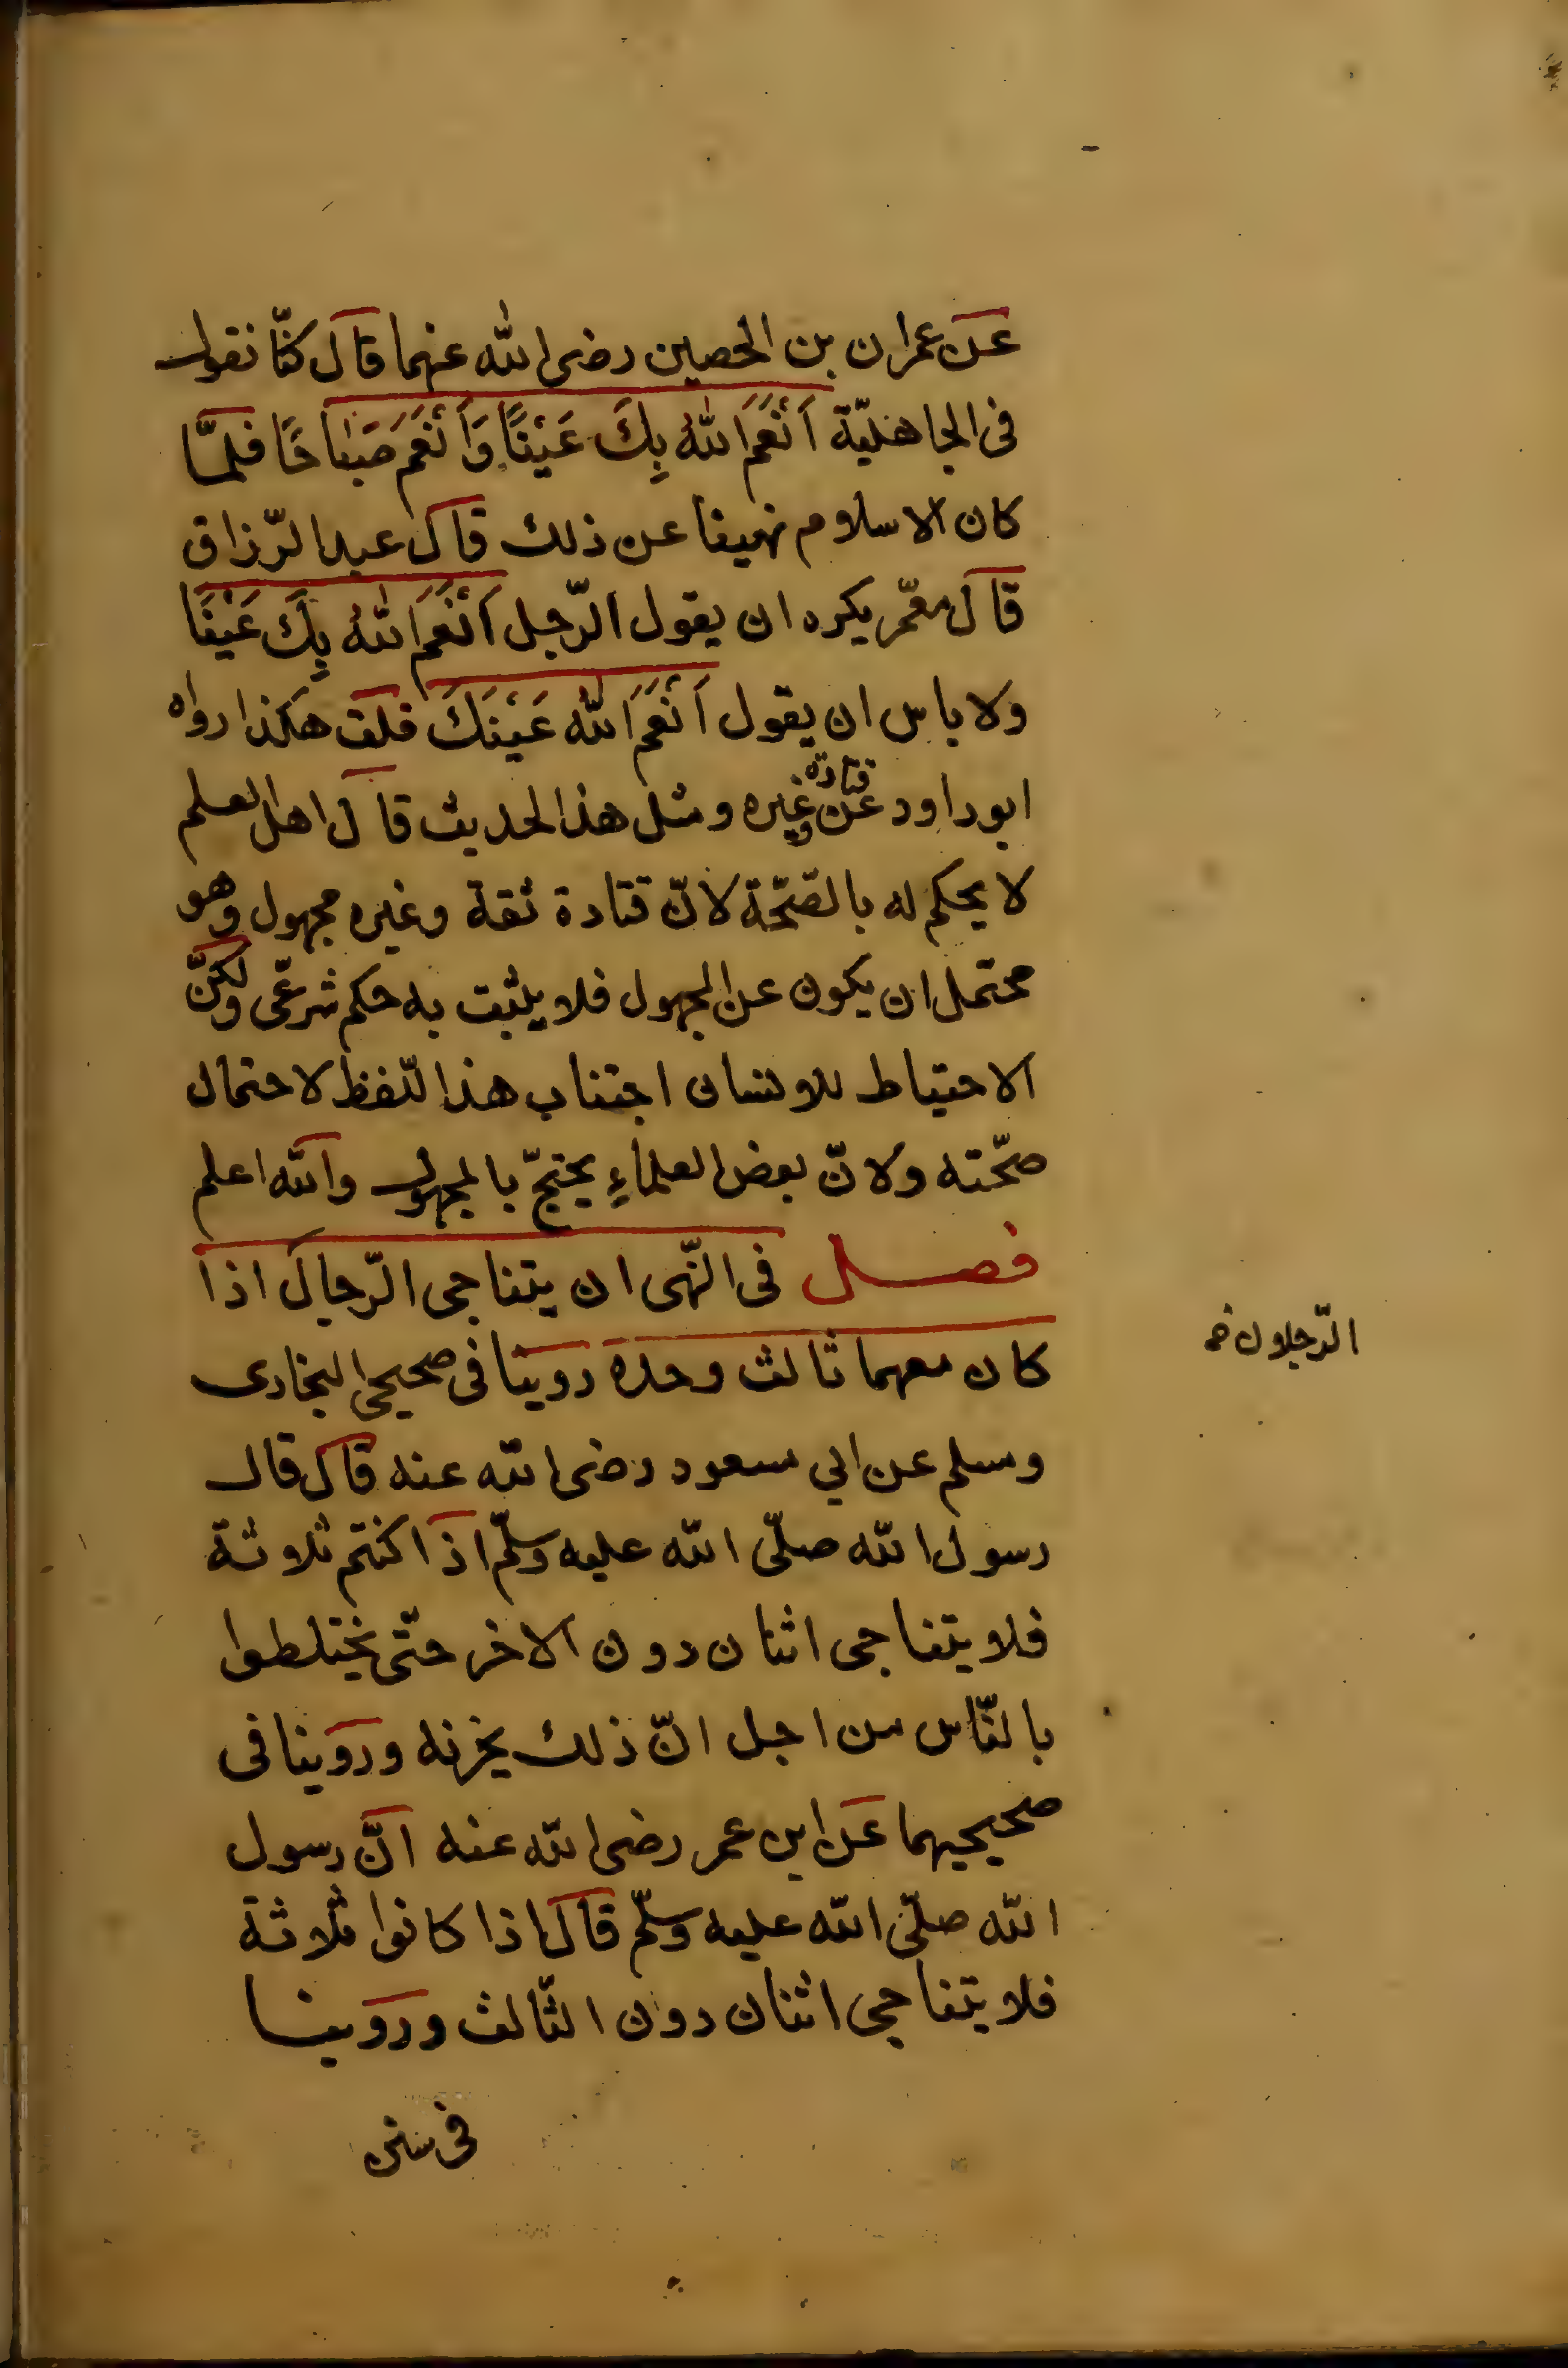 عن عمران بن الحصين رضى الله عنهما قال كنّا نقول
فى الجاهليّة اَنْعَمَ اللهُ بِكَ عَيْنًا وَاَنْعَم صَبَاحًا فلمّا
كان الاسلام نهينا عن ذلك قال عبد الرّزاق
قال معمّر يكره ان يقول الرّجل اَنْعَمَ اللهُ بِكَ عَيْنًا
ولا باس ان يقول اَنْعَمَ اللهُ عَيْنَكَ قلت هكذا رواه
ابو داود عن قتادة وغيره ومثل هذا الحديث قال اهل العلم
لا يحكم له بالصّحّة لانّ قتادة ثقة وغيره مجهول وهو
محتمل ان يكون عن المجهول فلا يثبت به حكم شرعّى ولكنّ
الاحتياط للانسان اجتناب هذا اللّفظ لاحتمال
صحّته ولانّ بعض العلماءِ يحتجّ بالمجهول والله اعلم
فصل فى النّهى ان يتناجى الرّجال اذا
الرّجلان صح
كان معهما ثالث وحده روينا فى صحيحى البخارى
ومسلم عن ابي مسعود رضى الله عنه قال قال
رسول الله صلّى الله عليه وسلّم اذا كنتم ثلاثة
فلا يتناجى اثنان دون الاخر حتّى يختلطوا
بالنّاس من اجل انّ ذلك يحزنه وروينا فى
صحيحيهما عن ابن عمر رضى الله عنه انّ رسول
الله صلّى الله عليه وسلّم قال اذا كانوا ثلاثة
فلا يتناجى اثنان دون الثّالث وروينا
فى سنن